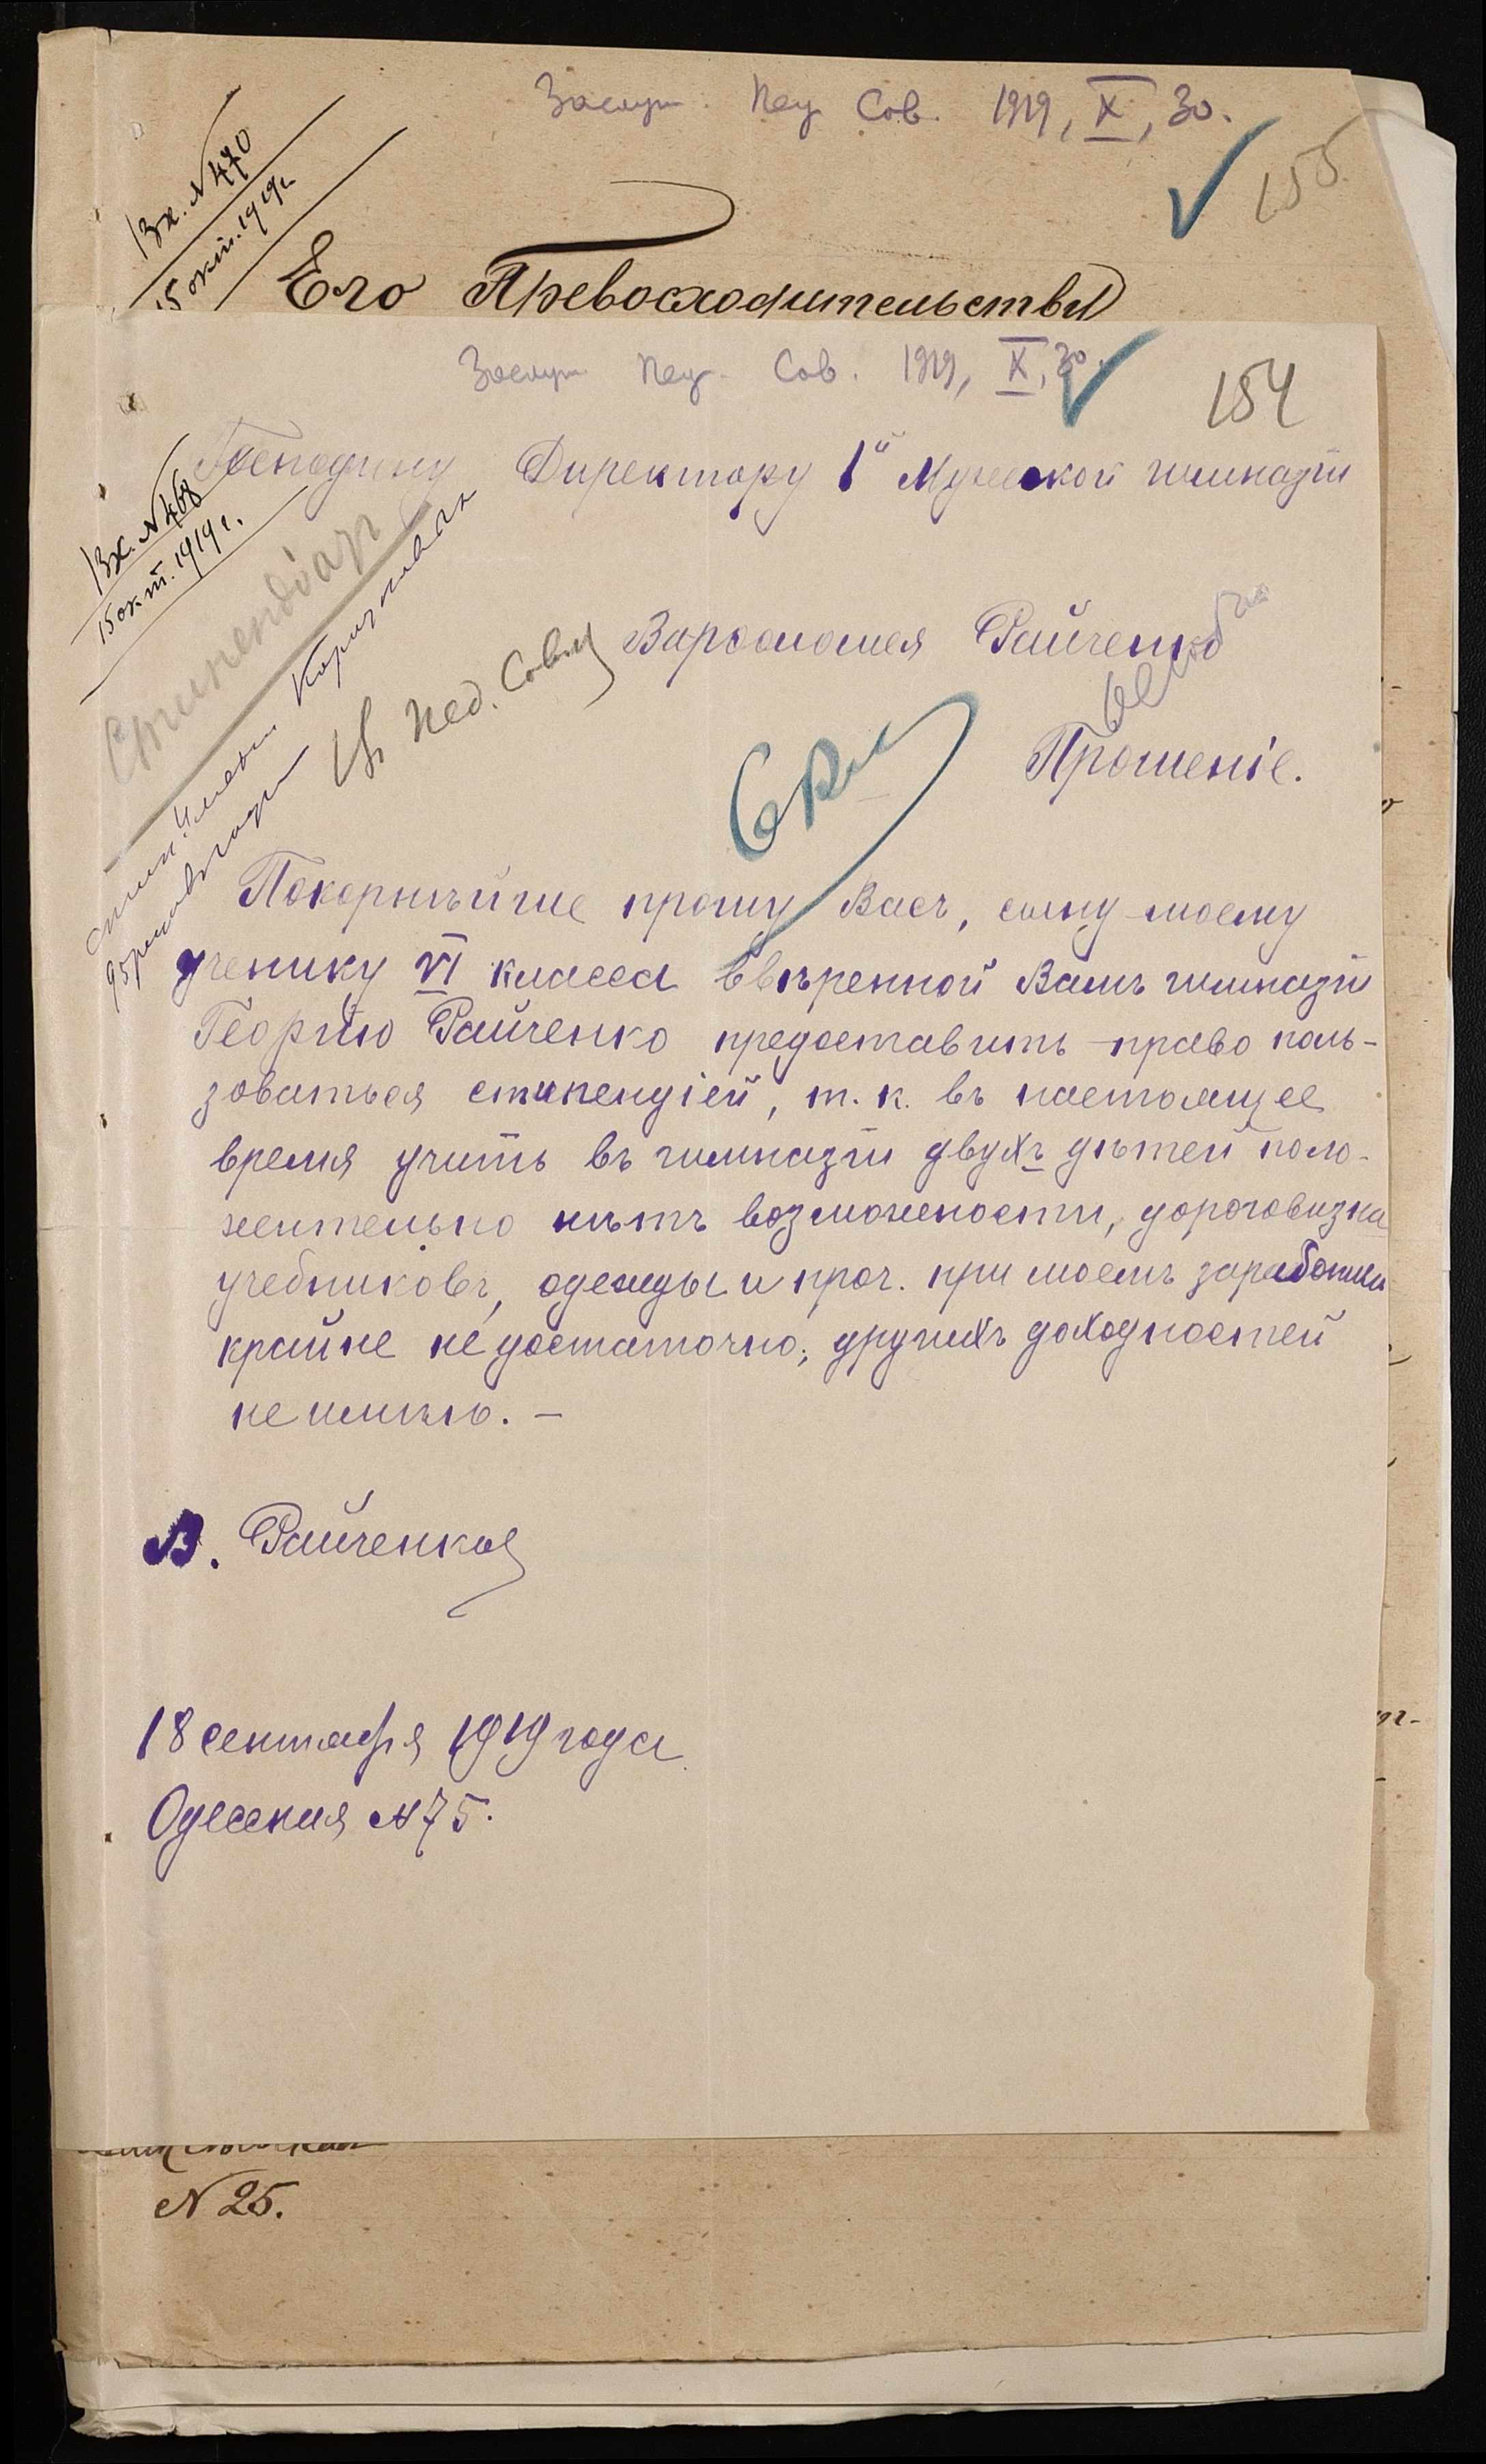 Заслуш. Пед Сов. 1919, X, 30.
155
Вх. № 470
15 окт. 1919 г.
Его Превосходительству
Заслуш. Пед. Сов. 1919, X, 30.
154
Вх. № 468
15 окт. 1919 г.
Господину Директору 1й Мужской гимназіи
Стипендіат
В Пед. Совет
Варфоломея Райченко
Прошеніе.
Покорнѣйше прошу Васъ, сыну моему
ученику VI класса ввѣренной Вамъ гимназіи
Георгію Райченко предоставить право поль-
зоваться стипендіей, т. к. въ настоящее
время учить въ гимназіи двухъ дѣтей поло-
жительно нѣтъ возможности, дороговизна
учебниковъ, одежды и проч. при моемъ заработкѣ
крайне недостаточно, другихъ доходностей
не имѣю. —
В. Райченко
18 сентября 1919 года
Одесская № 75.
№ 25.